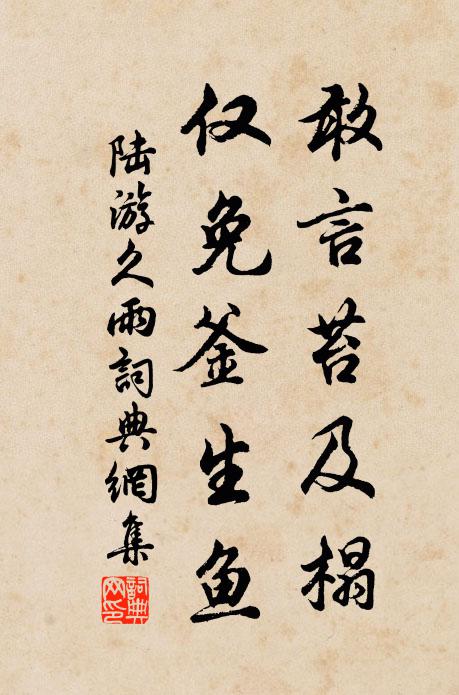 敢言苔及榻
仅免釜生鱼
陆游久雨詞典網集
詞典
网印